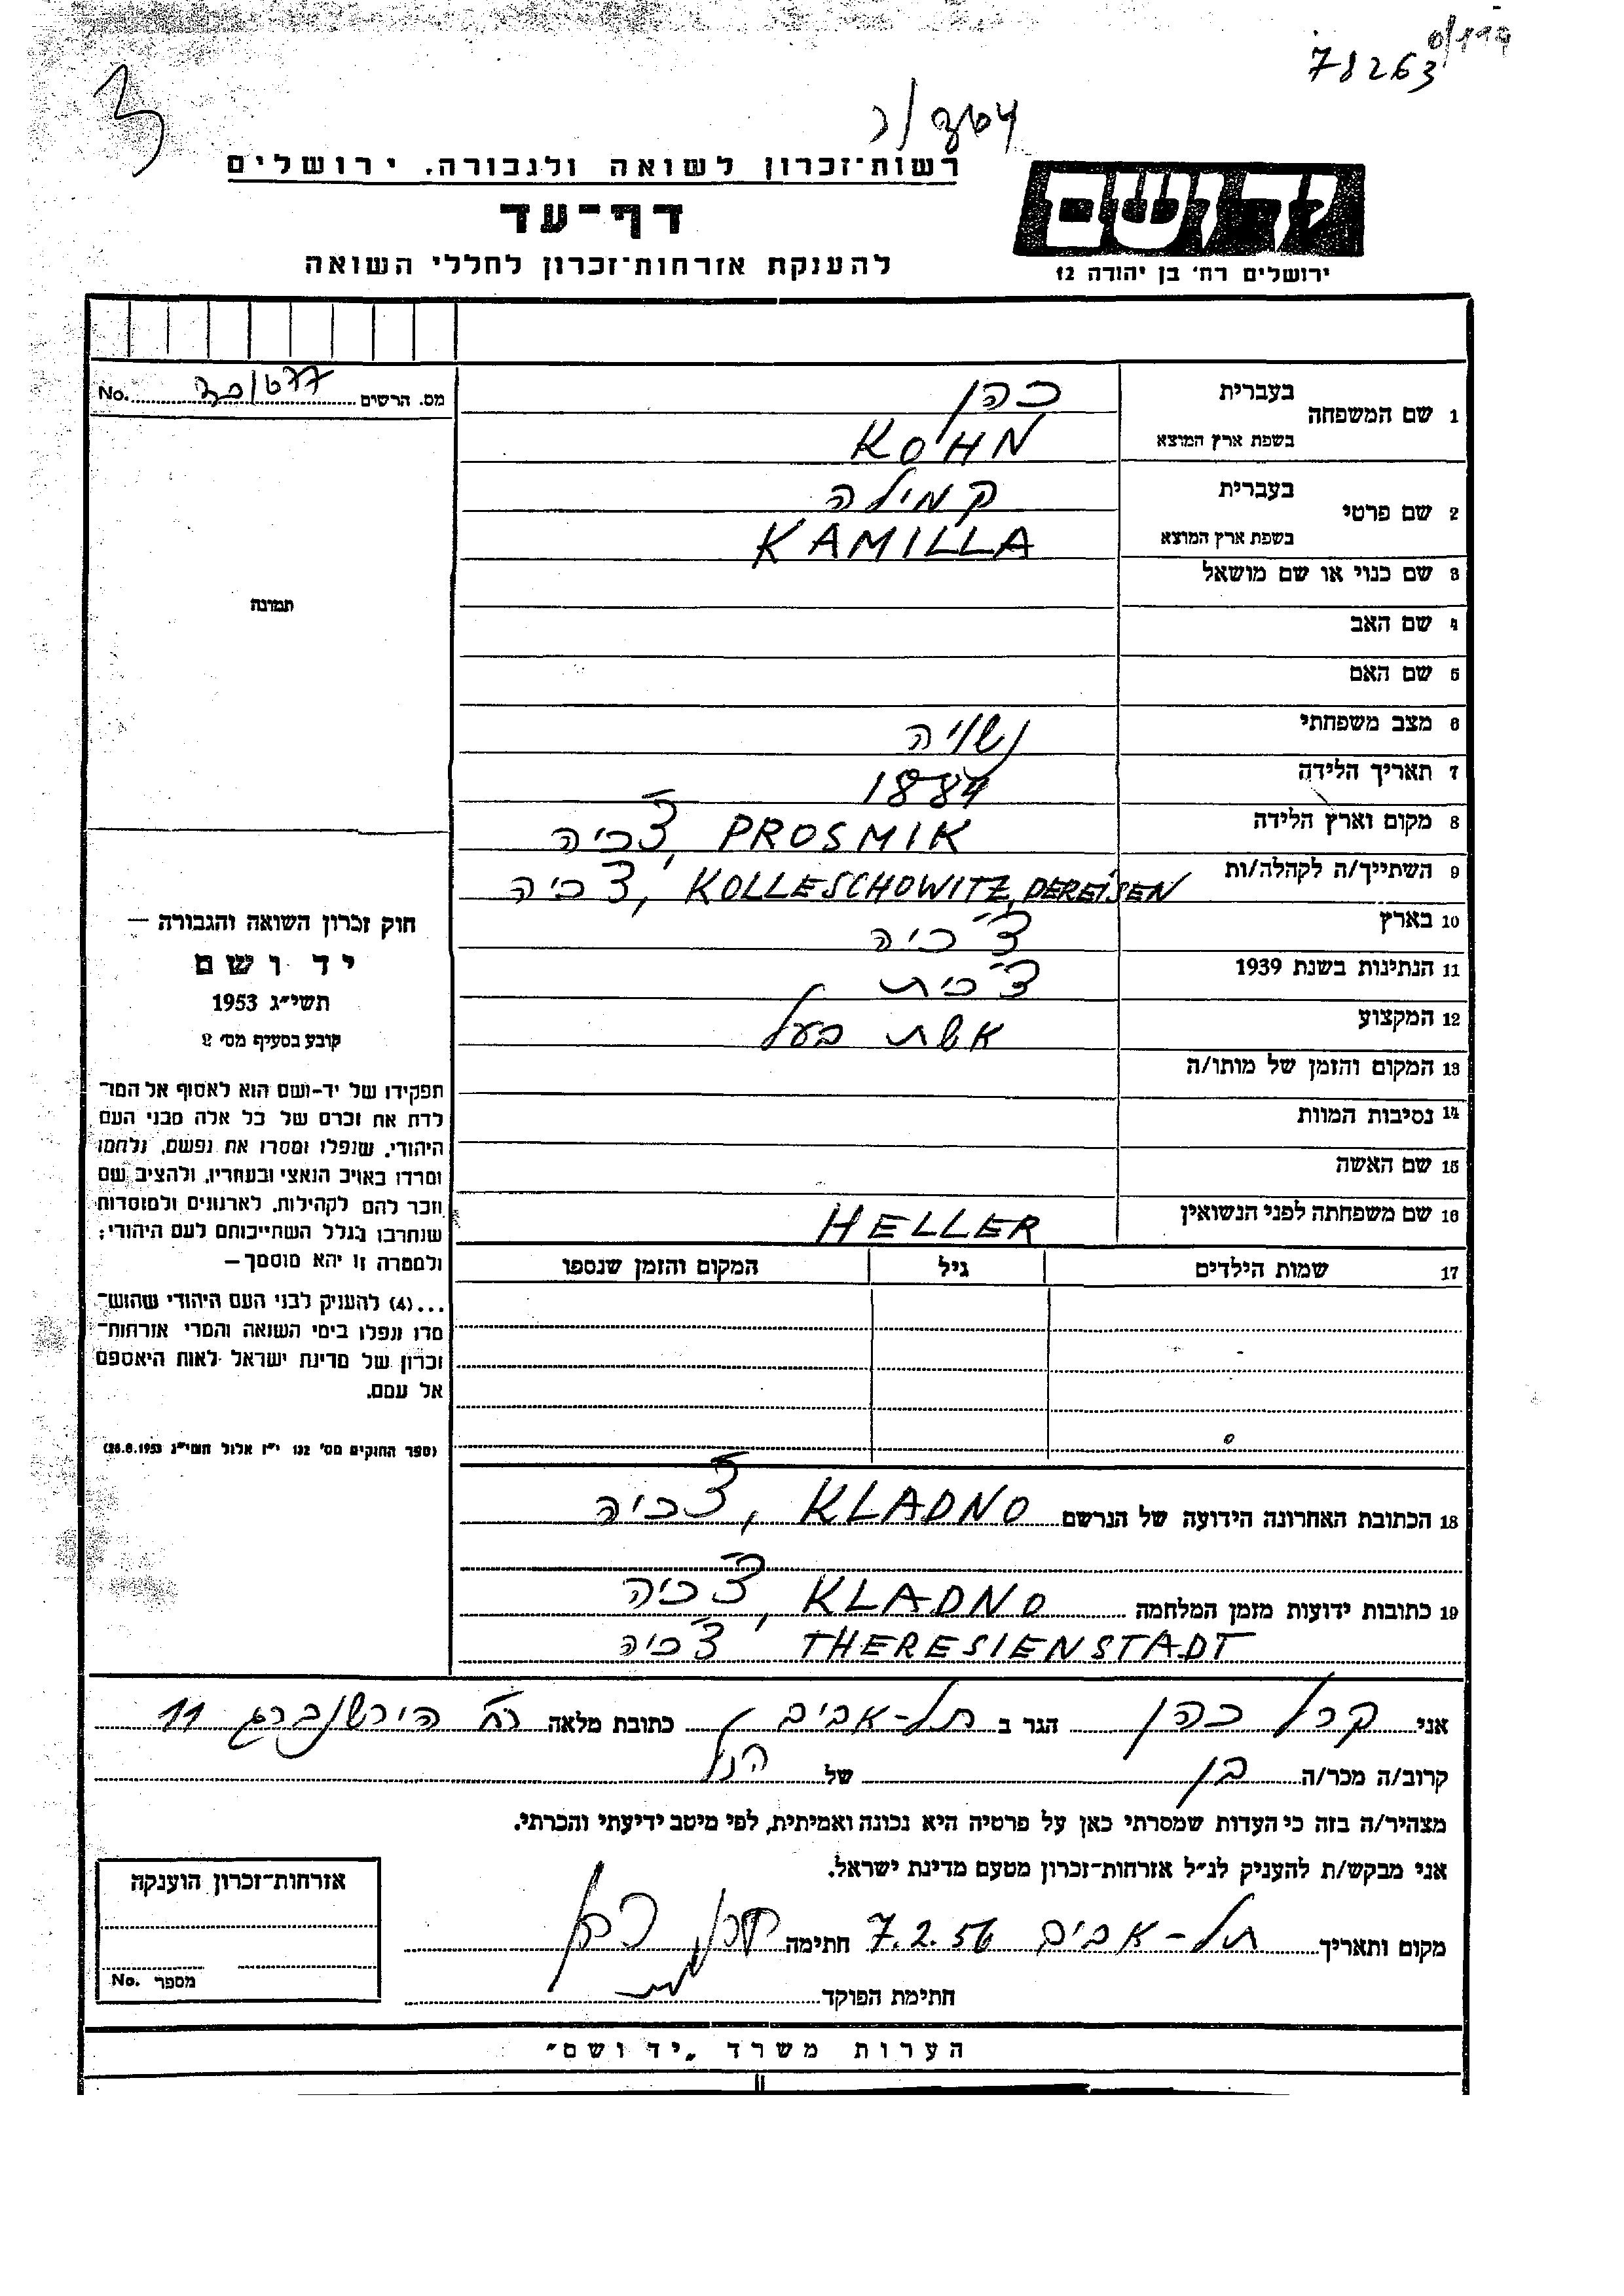 78263
רשות־זכרון לשואה ולגבורה. ירושלים
יד ושם
דף־עד
להענקת אזרחות־זכרון לחללי השואה
ירושלים רח' בן יהודה 12
מס. הרשים No.
1 שם המשפחה בעברית כהן
בשפת ארץ המוצא KOHN
2 שם פרטי בעברית קמילה
בשפת ארץ המוצא KAMILLA
3 שם כנוי או שם מושאל
תמונה
4 שם האב
5 שם האם
6 מצב משפחתי נשויה
7 תאריך הלידה 1884
8 מקום וארץ הלידה PROSMIK, צ'כיה
9 השתייך/ה לקהלה/ות KOLLESCHOWITZ, DEREISEN, צ'כיה
10 בארץ צ'כיה
11 הנתינות בשנת 1939 צ'כית
12 המקצוע אשת בעל
13 המקום והזמן של מותו/ה
14 נסיבות המוות
15 שם האשה
16 שם משפחתה לפני הנשואין HELLER
17 שמות הילדים גיל המקום והזמן שנספו
חוק זכרון השואה והגבורה —
יד ושם
תשי״ג 1953
קובע בסעיף מס׳ 2
תפקידו של יד-ושם הוא לאסוף אל המו־
לדת את זכרם של כל אלה מבני העם
היהודי, שנפלו ומסרו את נפשם, נלחמו
ומרדו באויב הנאצי ובעוזריו, ולהציב שם
וזכר להם לקהילות, לארגונים ולמוסדות
שנחרבו בגלל השתייכותם לעם היהודי;
ולמטרה זו יהא מוסמך —
...(4) להעניק לבני העם היהודי שהוש־
מדו ונפלו בימי השואה והמרי אזרחות־
זכרון של מדינת ישראל לאות היאספם
אל עמם.
(ספר החוקים מס׳ 132 י״ז אלול תשי״ג 28.8.1953)
18 הכתובת האחרונה הידועה של הנרשם KLADNO, צ'כיה
19 כתובות ידועות מזמן המלחמה KLADNO, צ'כיה
THERESIENSTADT צ'כיה
אני קרל כהן הגר ב תל-אביב כתובת מלאה רח' הירשנברג 11
קרוב/ה מכר/ה בן של הנ״ל
מצהיר/ה בזה כי העדות שמסרתי כאן על פרטיה היא נכונה ואמיתית, לפי מיטב ידיעתי והכרתי.
אני מבקש/ת להעניק לנ״ל אזרחות-זכרון מטעם מדינת ישראל.
מקום ותאריך תל-אביב 7.2.56 חתימה
חתימת הפוקד
אזרחות־זכרון הוענקה
מספר No.
הערות משרד „יד ושם״